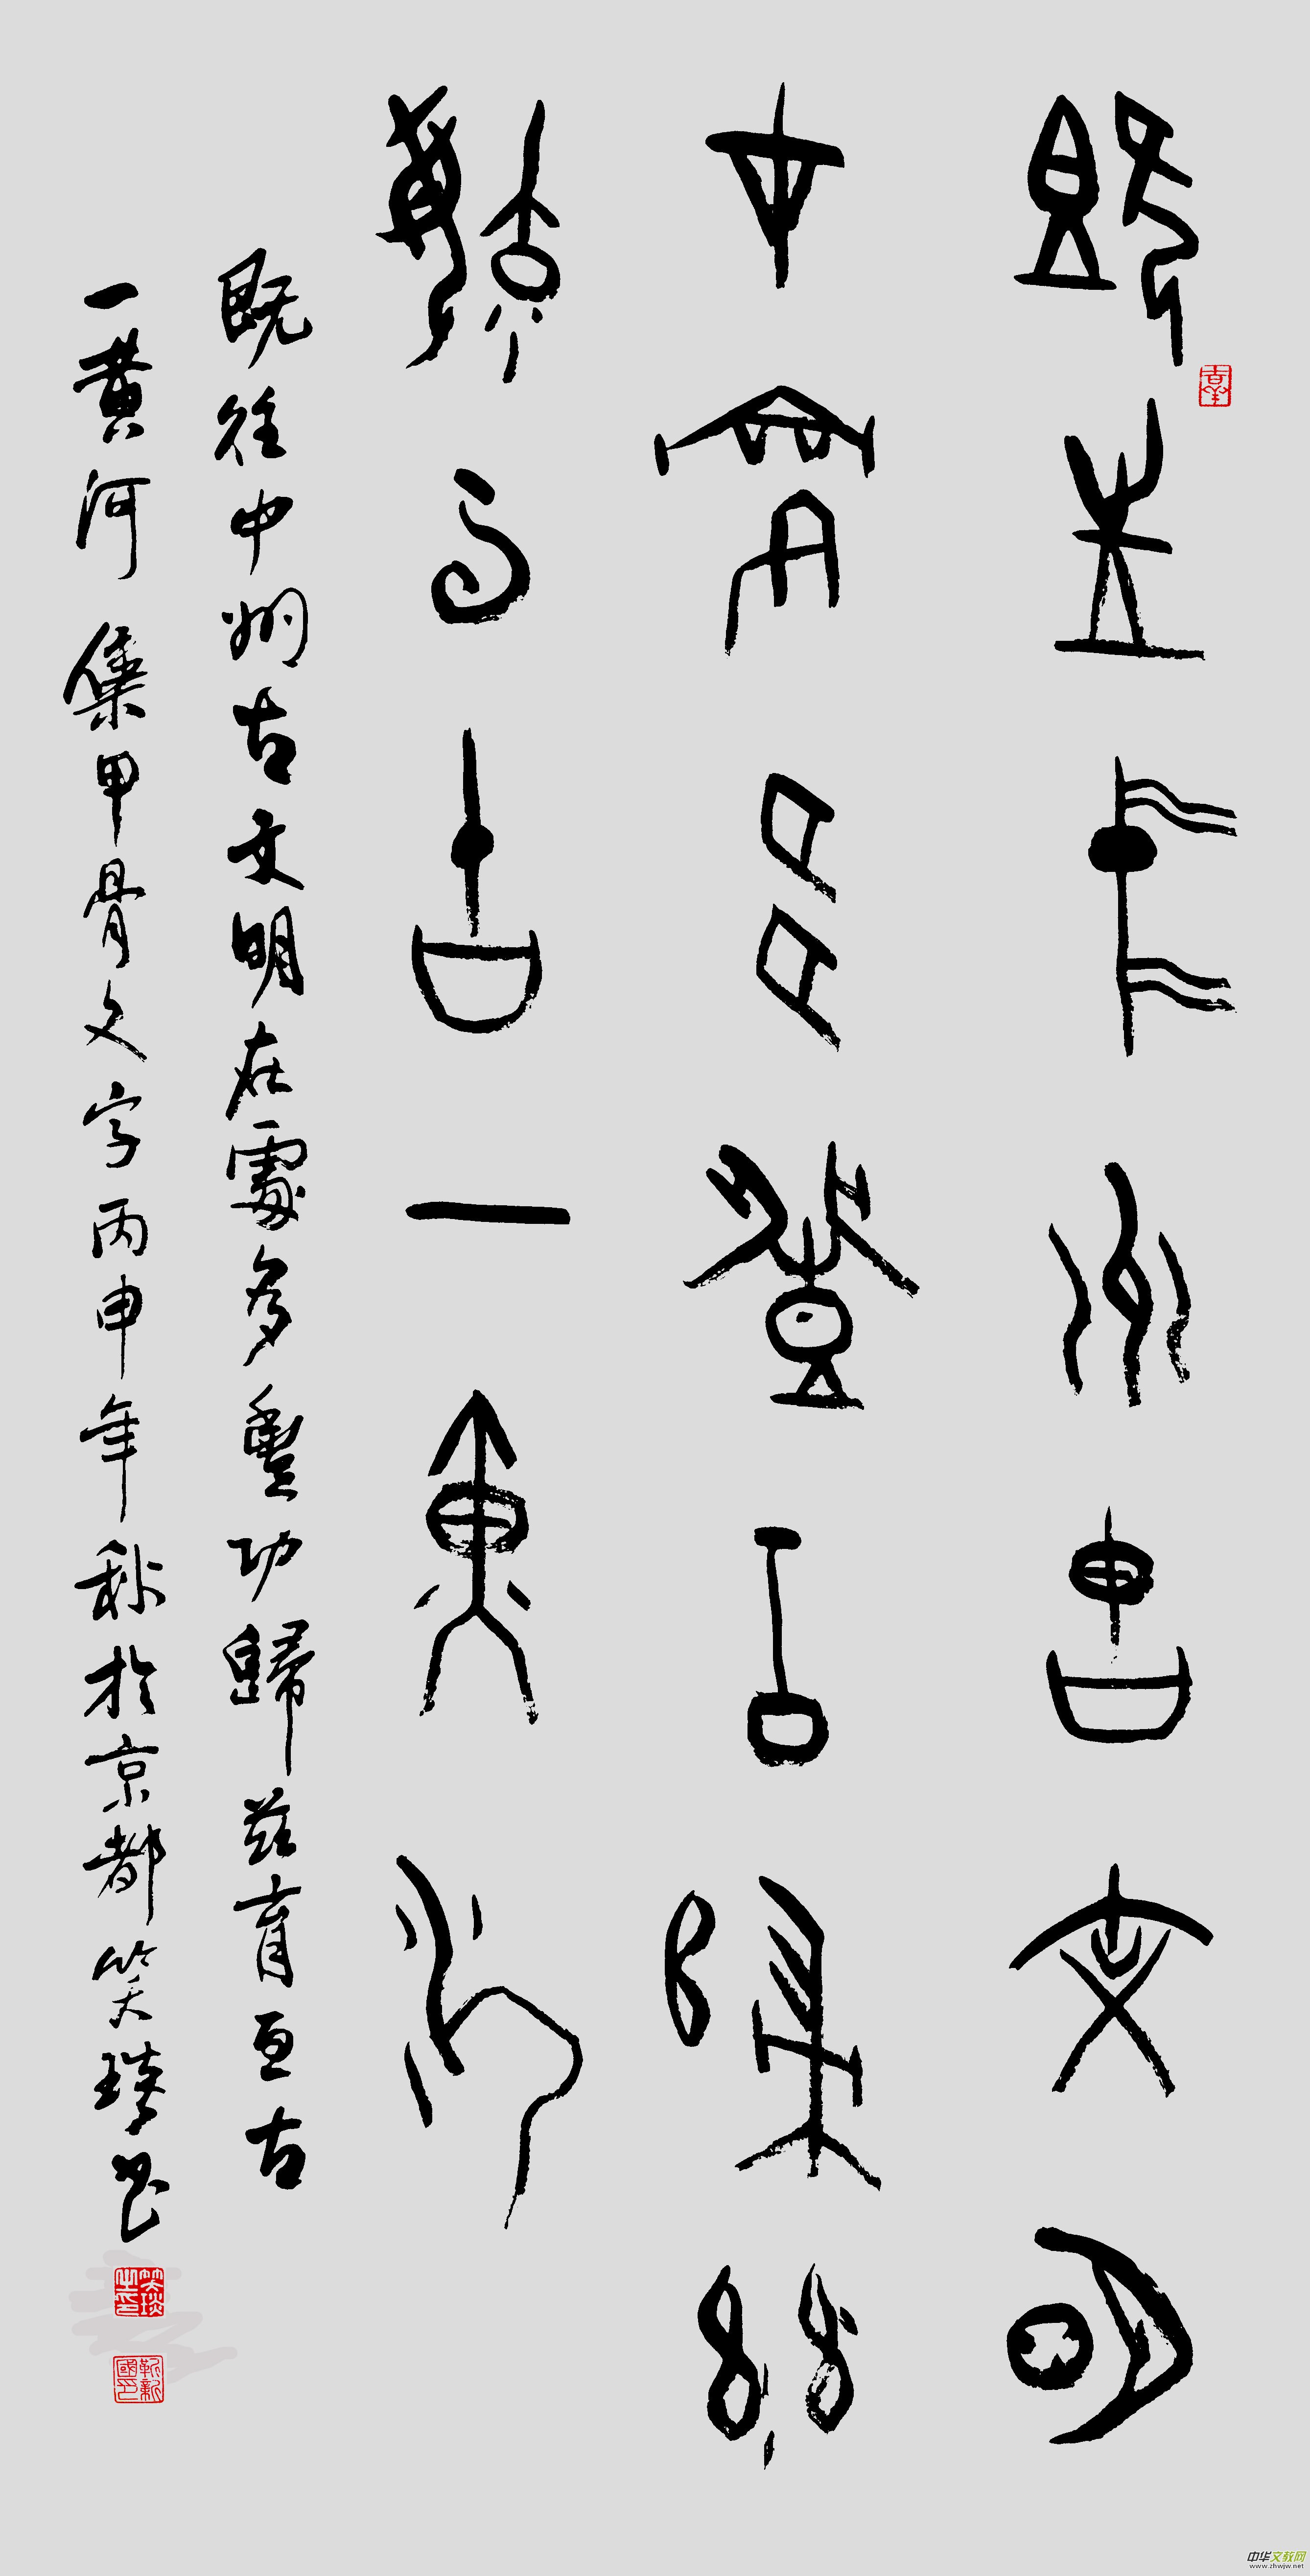 既往中州古文明
在處多豐功歸茲
育亙古一黃河
既往中州古文明在處多豐功歸茲育亙古
一黃河 集甲骨文字丙申年秋於京都笑琰書
笑琰之印
靳新國印
中华文教网
www.zhwjw.net